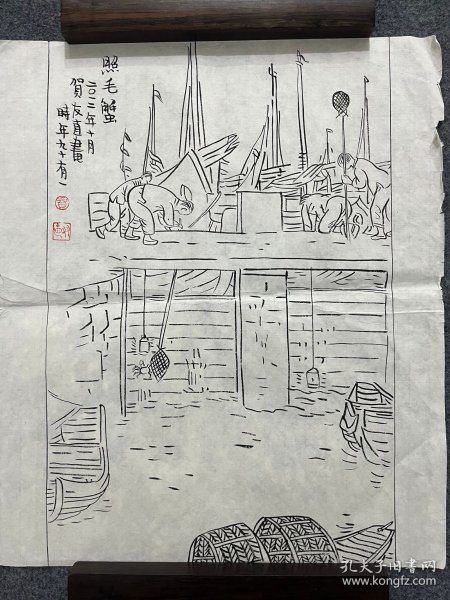 照毛蟹
二〇一二年十月
賀友直畫
時年九十有一
孔夫子旧书网
www.kongfz.com